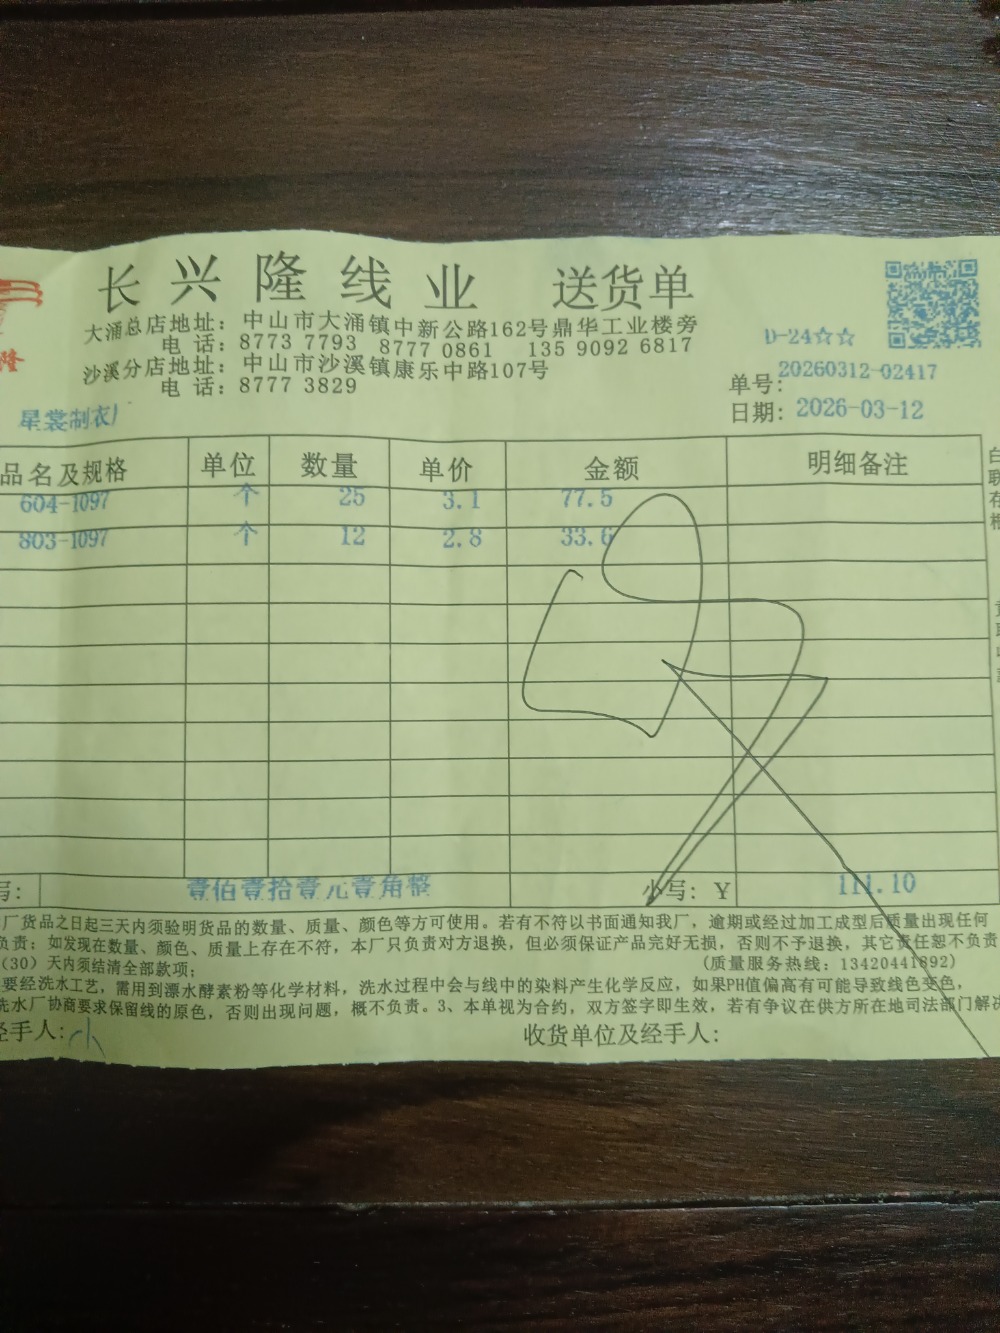 长兴隆线业 送货单
大涌总店地址：中山市大涌镇中新公路162号鼎华工业楼旁
电 话：8773 7793 8777 0861 135 9092 6817
沙溪分店地址：中山市沙溪镇康乐中路107号
电 话：8777 3829
隆
D-24☆☆
单号：20260312-02417
日期：2026-03-12
星裳制衣厂
品名及规格 单位 数量 单价 金额 明细备注
604-1097 个 25 3.1 77.5
803-1097 个 12 2.8 33.6
写： 壹佰壹拾壹元壹角整 小写：Y 111.10
厂货品之日起三天内须验明货品的数量、质量、颜色等方可使用。若有不符以书面通知我厂，逾期或经过加工成型后质量出现任何
负责；如发现在数量、颜色、质量上存在不符，本厂只负责对方退换，但必须保证产品完好无损，否则不予退换，其它责任恕不负责
（30）天内须结清全部款项； （质量服务热线：13420441892）
要经洗水工艺，需用到漂水酵素粉等化学材料，洗水过程中会与线中的染料产生化学反应，如果PH值偏高有可能导致线色变色，
洗水厂协商要求保留线的原色，否则出现问题，概不负责。3、本单视为合约，双方签字即生效，若有争议在供方所在地司法部门解决
经手人： 收货单位及经手人：